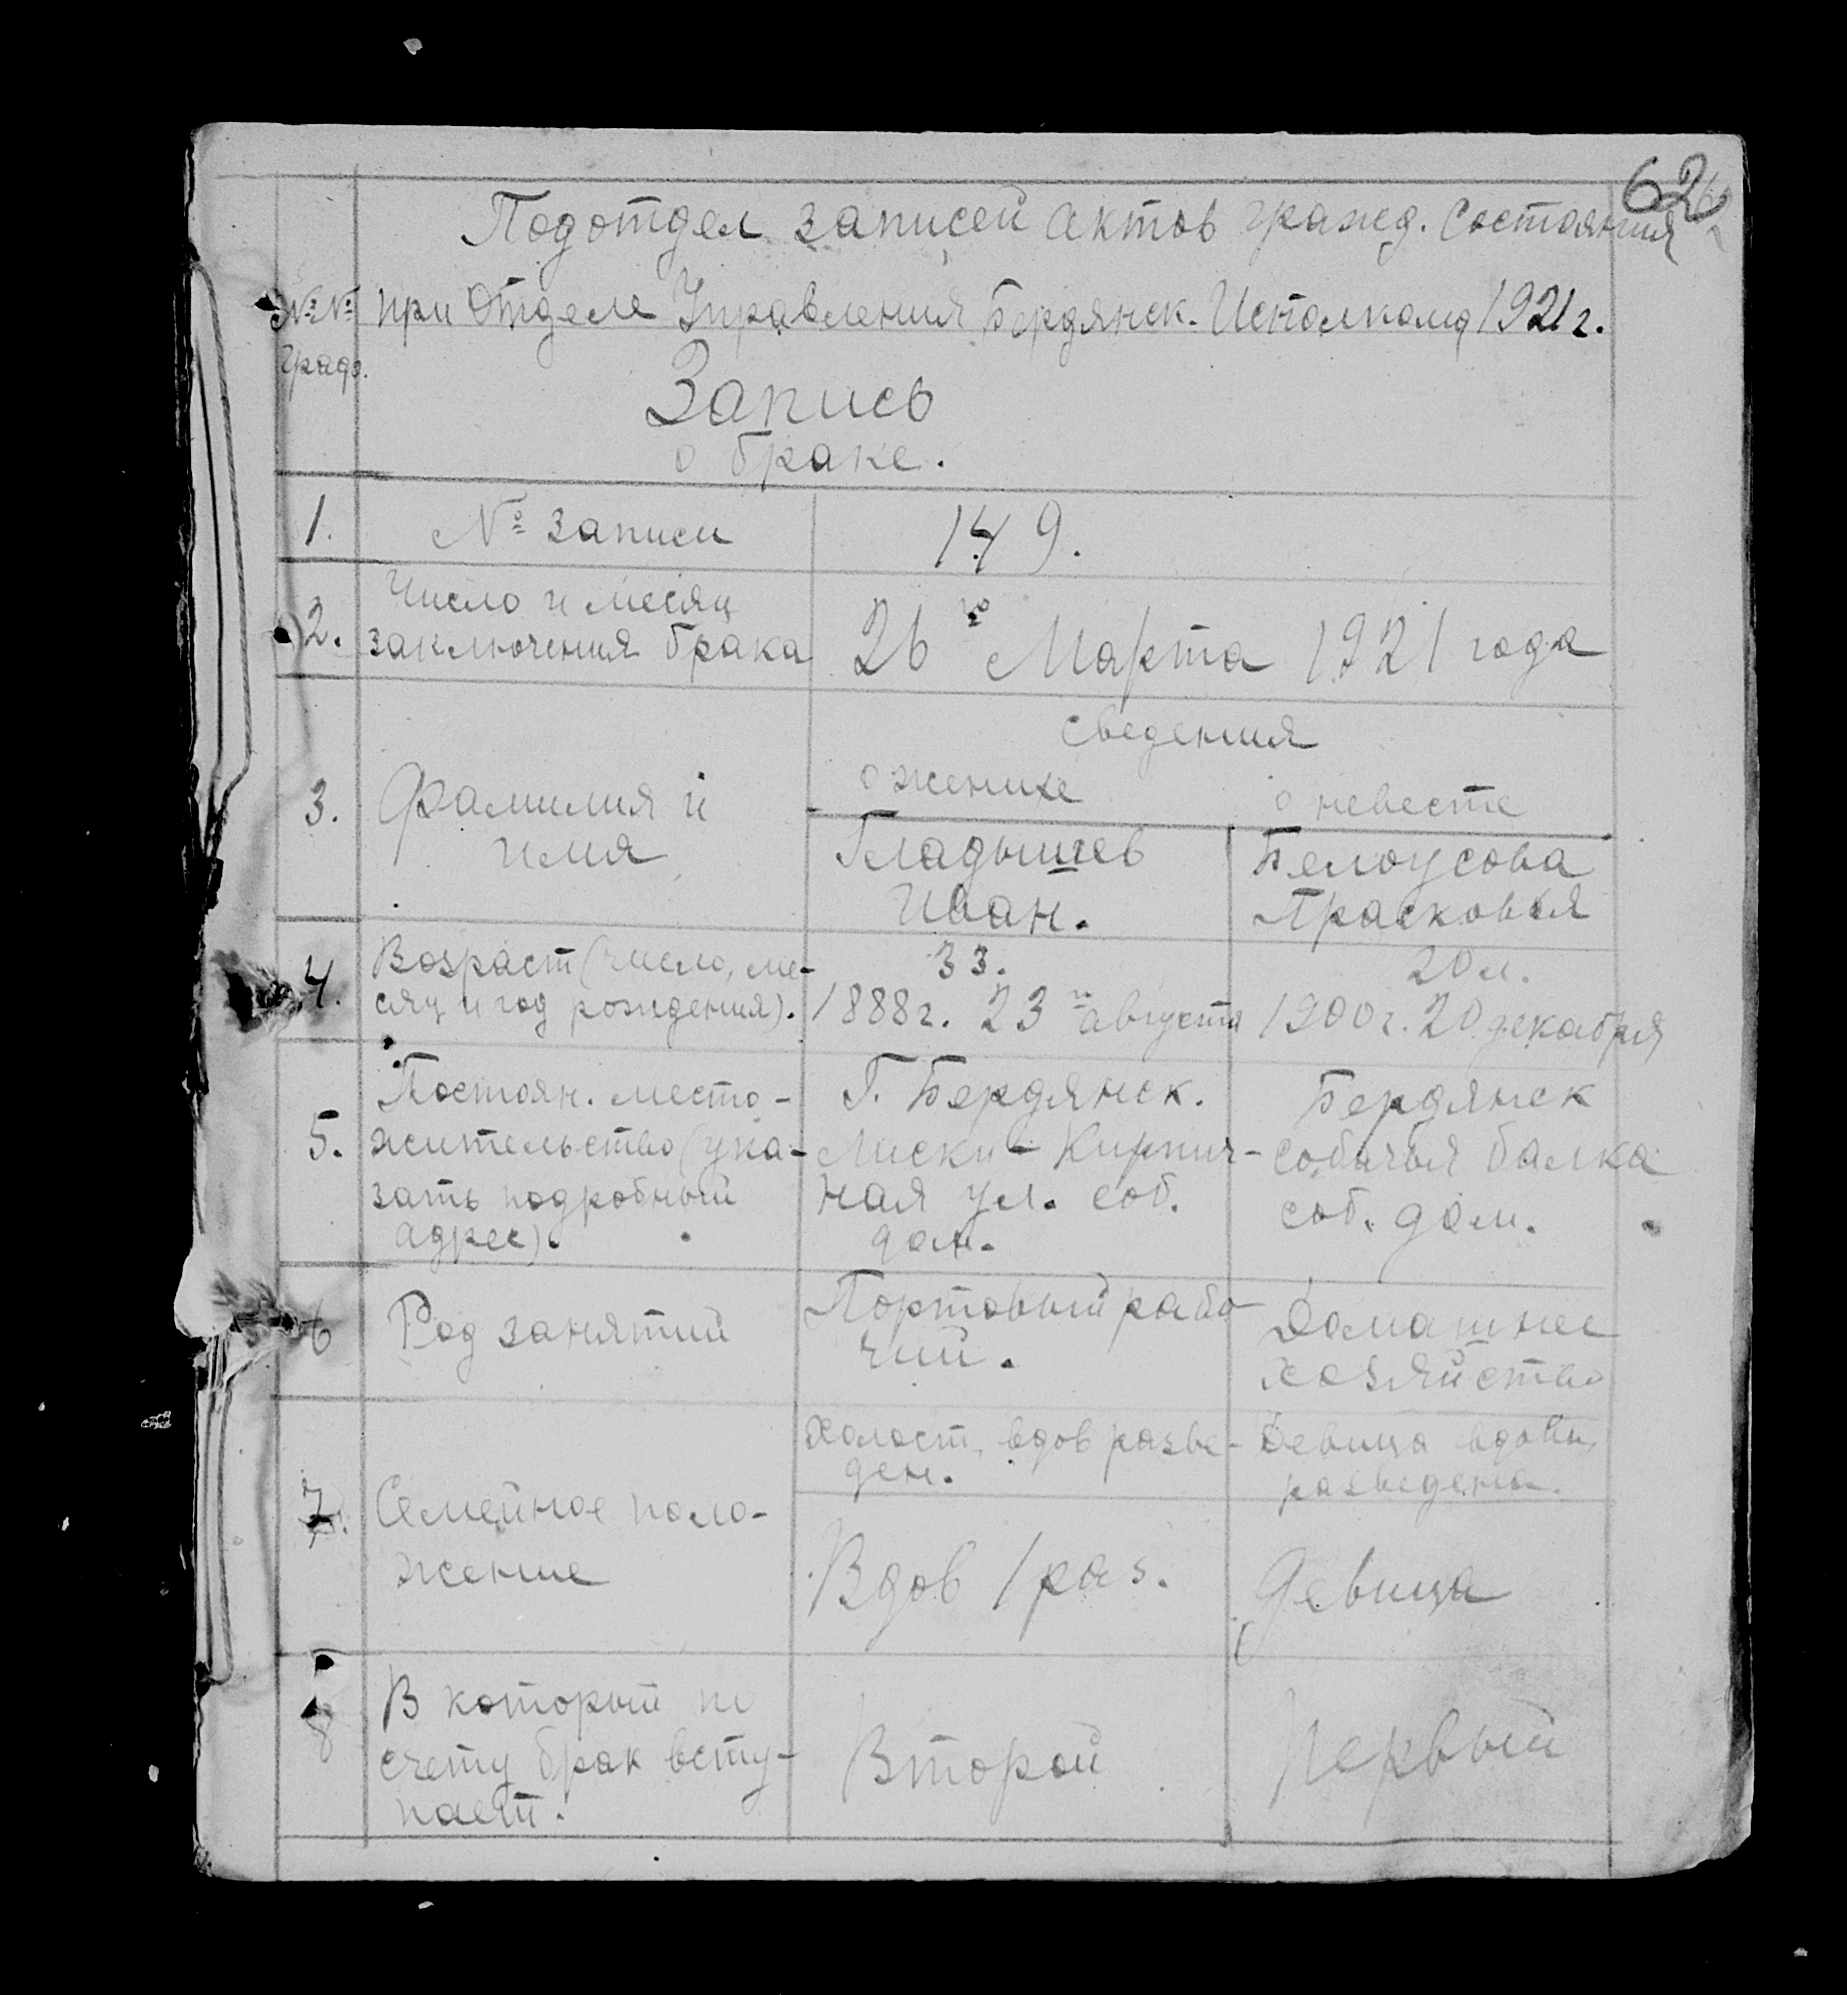 62
Подотдел записей актов гражд. Состояния
№№ при Отделе Управления Бердянск. Исполкома 1921 г.
граф.
Запись
о браке.
1. № записи 149.
2. Число и месяц
заключения брака 26го Марта 1921 года
сведения
о женихе о невесте
3. Фамилия и
имя
Гладышев Белоусова
Иван. Прасковья
4. Возраст (число, ме-
сяц и год рождения).
33. 20 л.
1888 г. 23го августа 1900 г. 20 декабря
5. Постоян. место-
жительство (ука-
зать подробный
адрес).
Г. Бердянск.
Лиски - Кирпич-
ная ул. соб.
дом.
Бердянск
собачья балка
соб. дом.
6 Род занятий
Портовый рабо
чий.
Домашнее
хозяйство
7. Семейное поло-
жение
Холост, вдов разве-
ден.
Девица вдова,
разведена.
Вдов 1 раз. Девица
8 В который по
счету брак всту-
пает.
Второй Первый